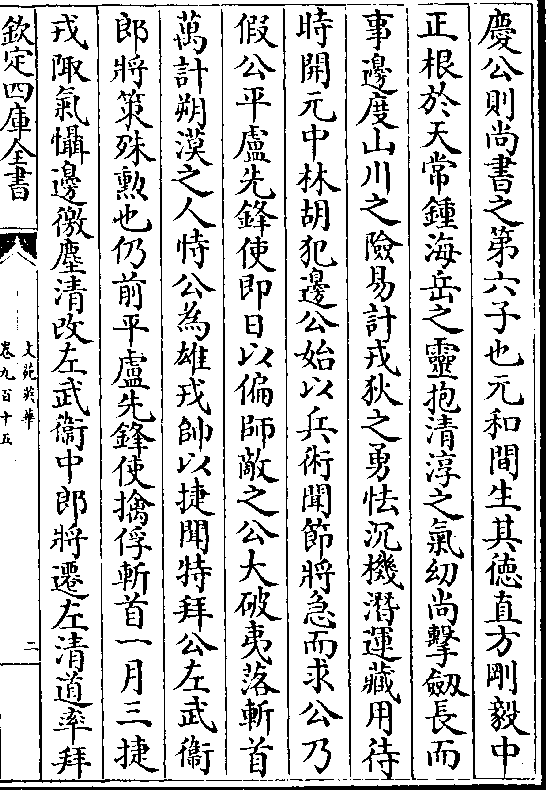 慶公則尚書之第六子也元和間生其德直方剛毅中
正根於天常鍾海岳之靈抱清淳之氣幼尚擊劔長而
事邊度山川之險易計戎狄之勇怯沉機潛運藏用待
時開元中林胡犯邊公始以兵術聞節將急而求公乃
假公平盧先鋒使即日以偏師敵之公大破夷落斬首
萬計朔漠之人恃公為雄戎帥以捷聞特拜公左武衛
郎將策殊勲也仍前平盧先鋒使擒俘斬首一月三捷
戎陬氣懾邊徼塵清改左武衛中郎將遷左清道率拜
欽定四庫全書
文苑英華
卷九百十五
二